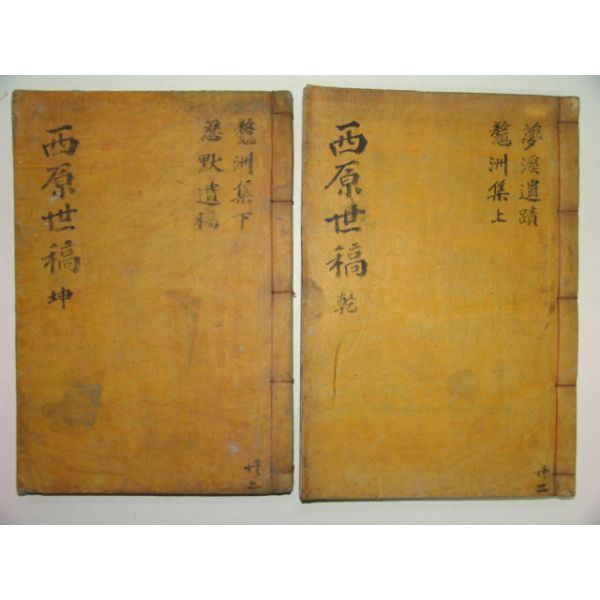 西原世稿 乾
夢溪遺蹟
鼇洲集 上
二
西原世稿 坤
鼇洲集 下
默遺稿